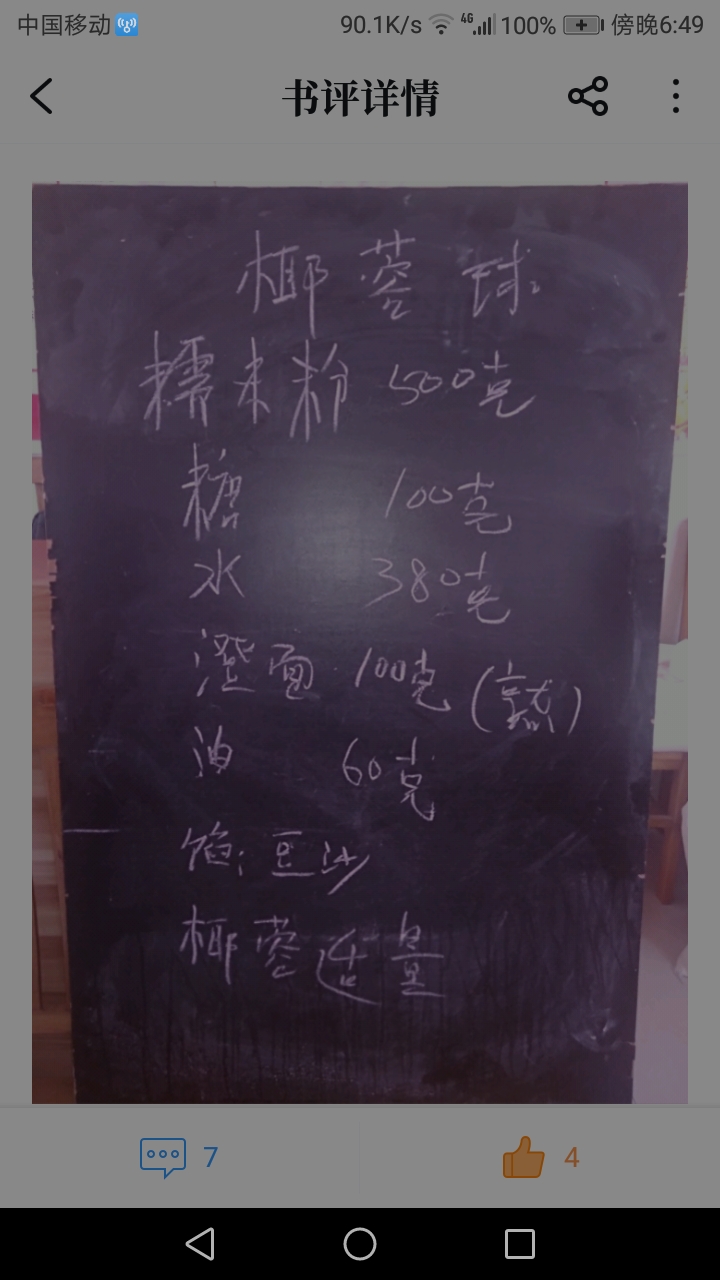 中国移动 90.1K/s 4G 100% 傍晚6:49
书评详情
椰蓉球
糯米粉 500克
糖 100克
水 380克
澄面 100克 (熟)
油 60克
馅: 豆沙
椰蓉适量
7 4